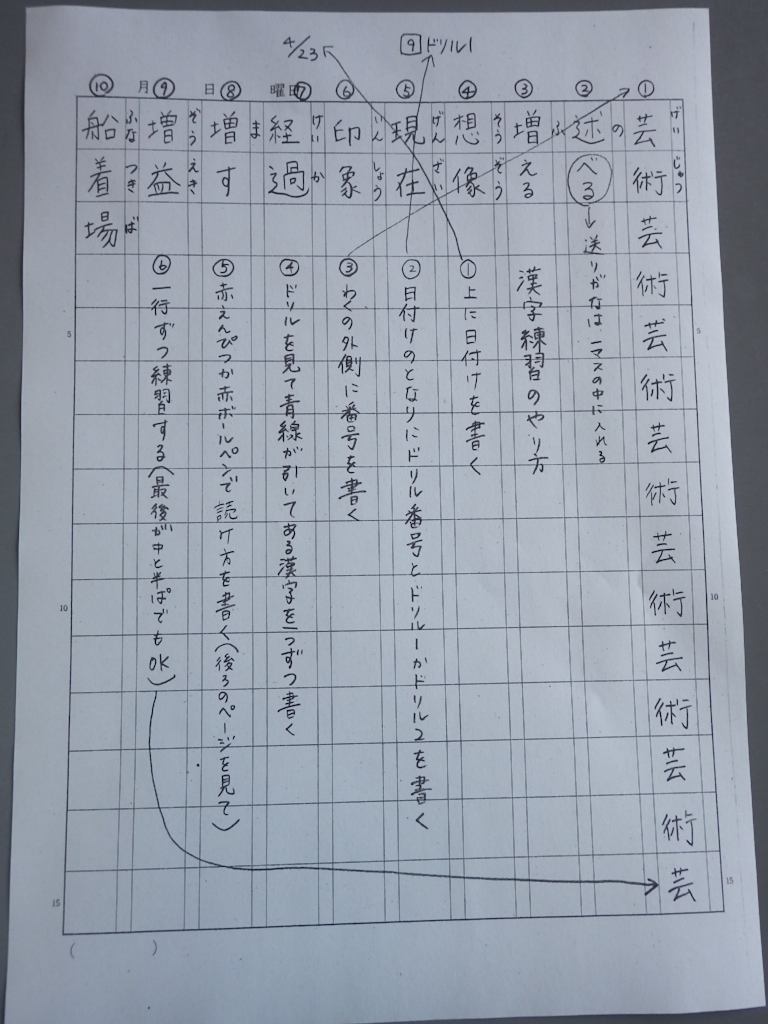 4/23
9 ドリル1
⑩ 月⑨ 日⑧ 曜日⑦ ⑥ ⑤ ④ ③ ② ①
芸術芸術芸術芸術芸術芸術芸術芸
げいじゅつ
述べる→送りがなは一マスの中に入れる
の
増える
ふ
漢字練習のやり方
想像
そうぞう
①上に日付けを書く
現在
げんざい
②日付けのとなりにドリル番号とドリル1かドリル2を書く
印象
いんしょう
③わくの外側に番号を書く
経過
けいか
④ドリルを見て青線が引いてある漢字を一つずつ書く
増す
ま
⑤赤えんぴつか赤ボールペンで読け方を書く(後ろのページを見て)
増益
ぞうえき
⑥一行ずつ練習する(最後が中と半ぱでもOK)
船着場
ふなつきば
5
10
15
5
10
15
( )